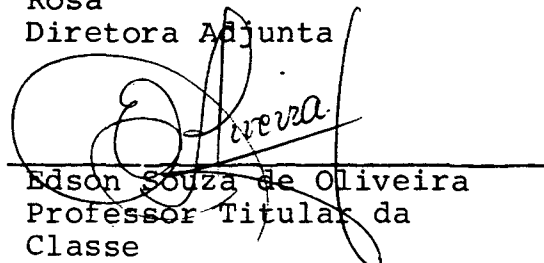 Rosa
Diretora Adjunta
Edson Souza de Oliveira
Professor Titular da
Classe